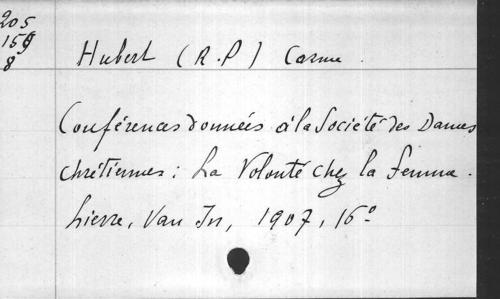 205
159
8
Hubert (R.P) Carme.
Conférences données à la Société des Dames
chrétiennes : La Volonté chez la femme.
Lierre, Van In, 1907, 16º